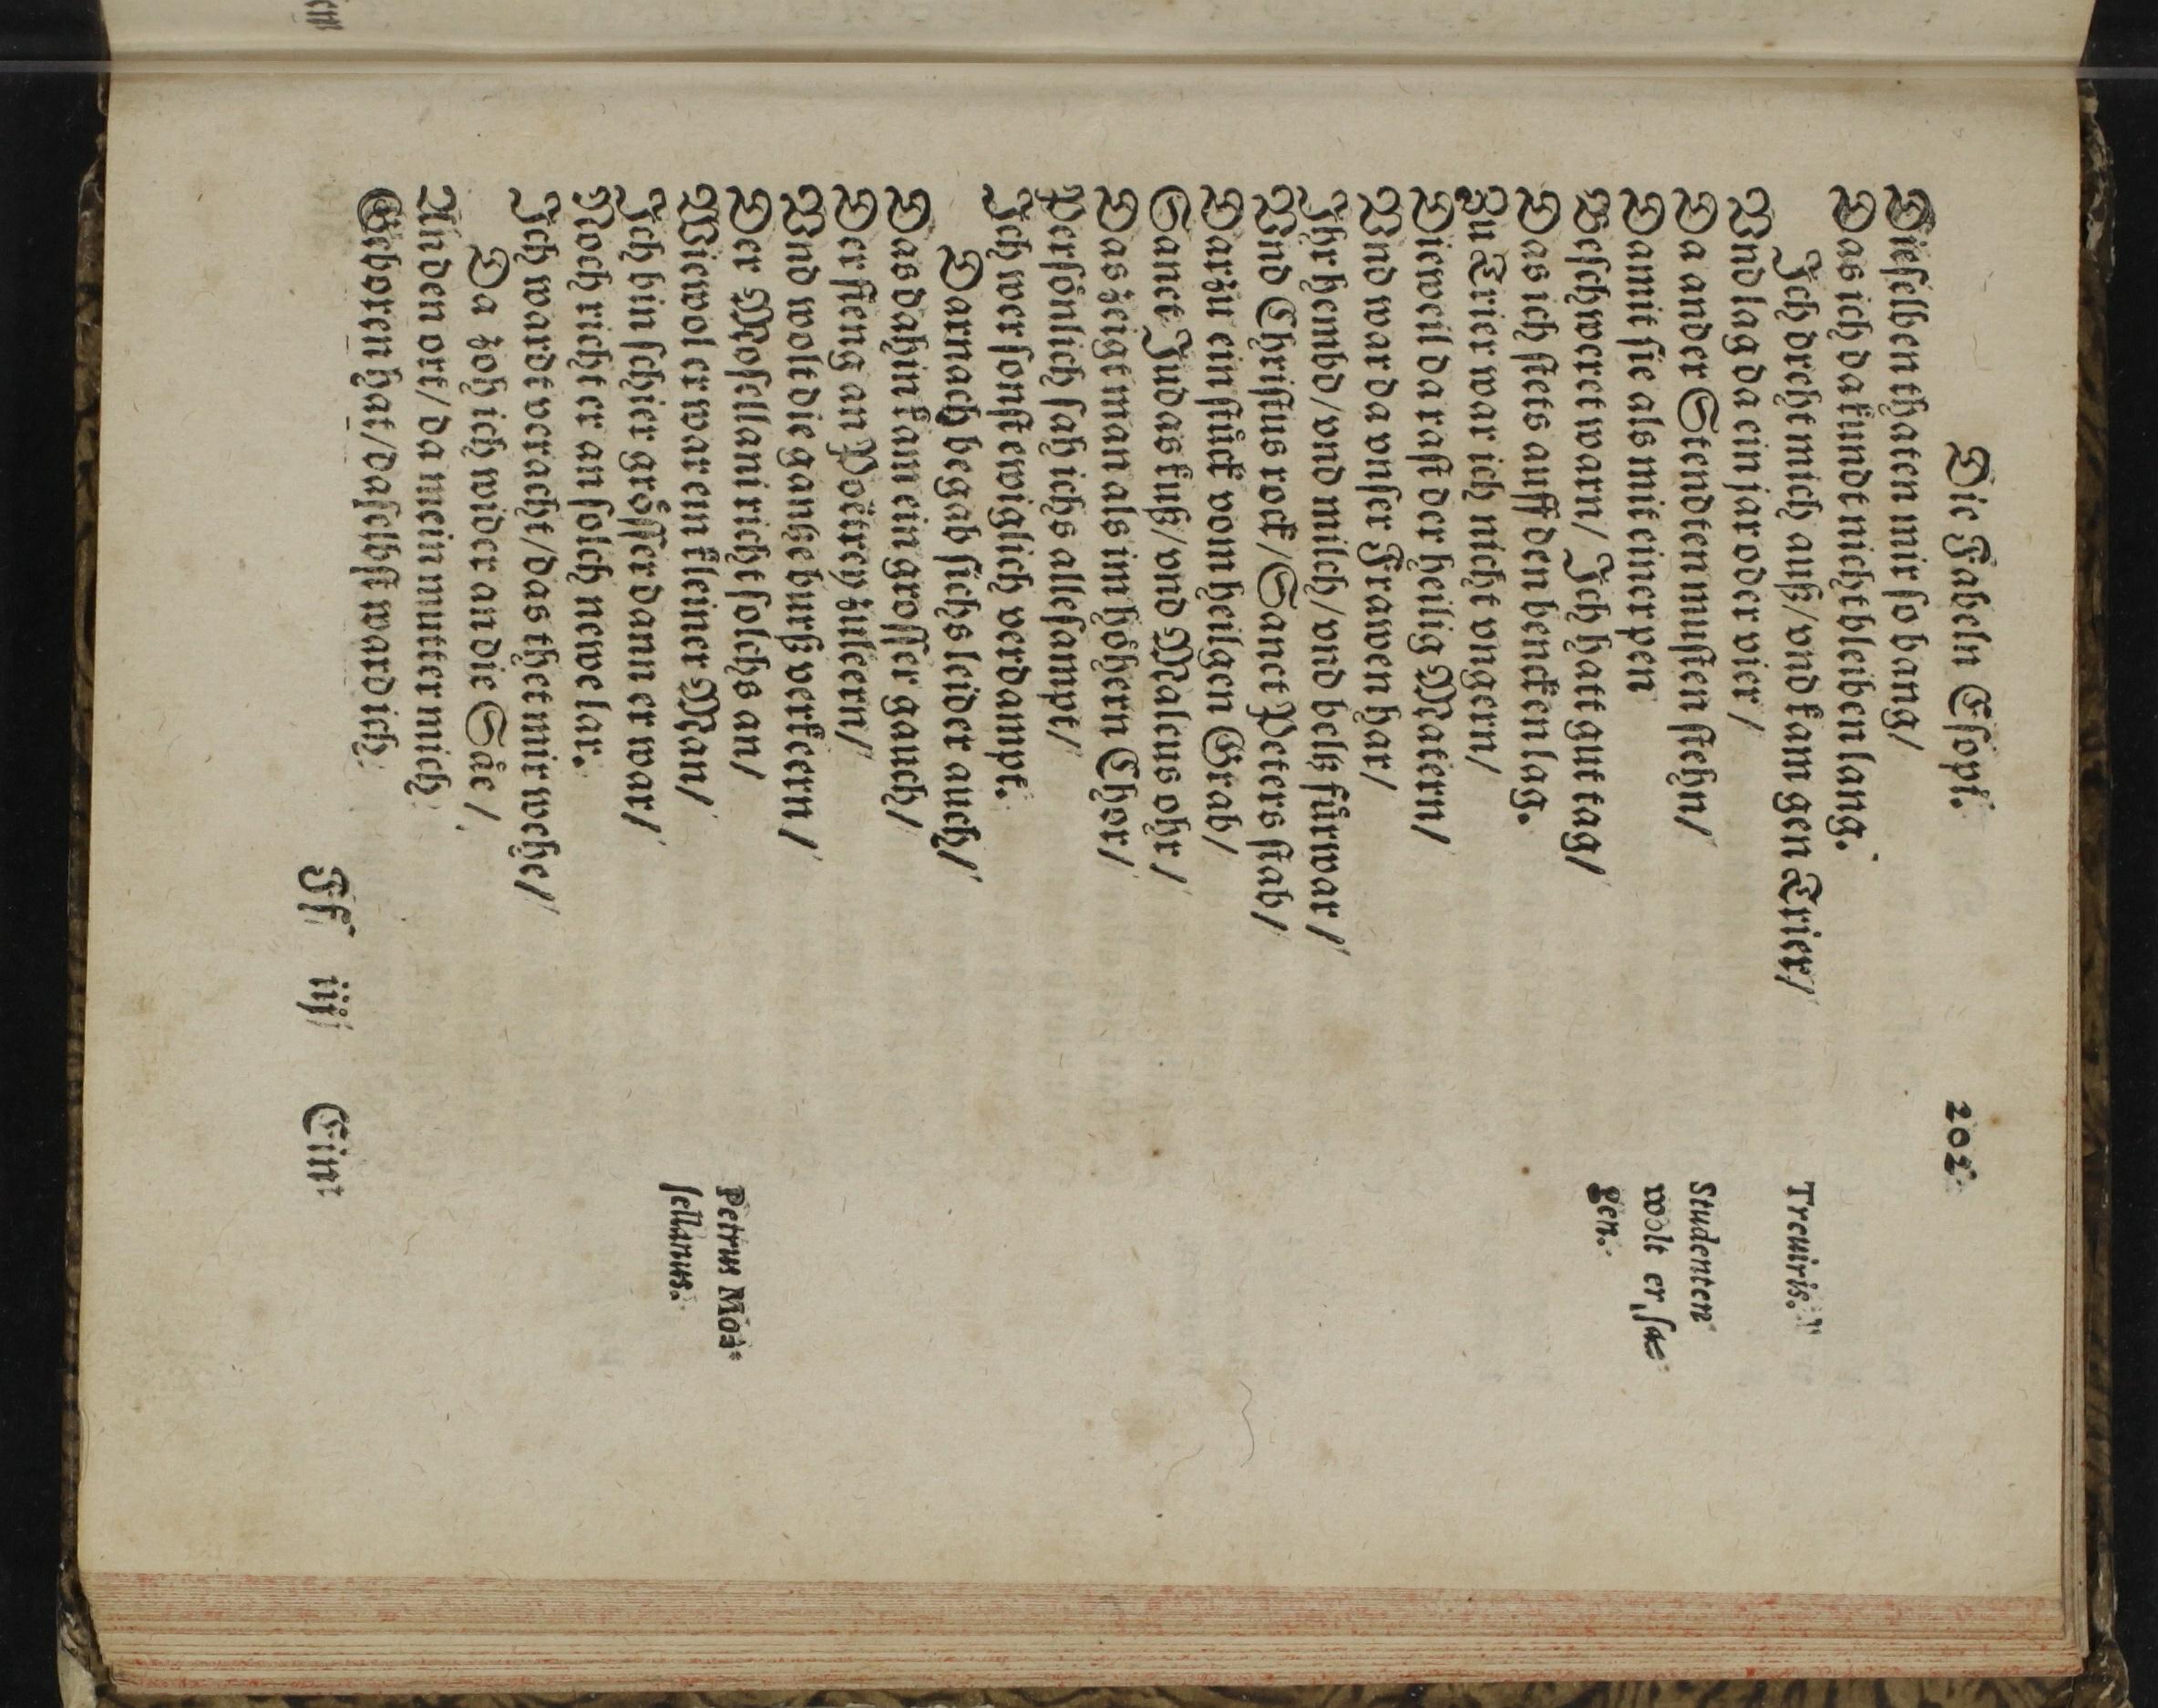 Die Fabeln Esopi. 202
Dieselben thaten mir so bang/
Das ich da kundt nicht bleiben lang.
Ich dreht mich auß/ vnd kam gen Trier/
Treuiris.
Vnd lag da ein jar oder vier/
Da ander Stendten musten stehn/
Studenten
Damit sie als mit einer pen
wolt er sa⸗
Beschweret warn/ Ich hatt gut tag/
gen.
Das ich stets auff den bencken lag.
Zu Trier war ich nicht vngern/
Dieweil da rast der heilig Matern/
Vnd ward a vnser Frawen har/
Ihr hembd/ vnd milch/ vnd beltz fürwar/
Vnd Christus rock/ Sanct Peters stab/
Darzu ein stück vom heilgen Grab/
Sanct Judas fuß/ vnd Malcus ohr/
Das zeigt man als im höhern Chor/
Persönlich sah ichs alle sampt/
Ich wer sonst ewiglich verdampt.
Darnach begab sichs leider auch/
Das dahin kam ein grosser gauch/
Der fieng an Poëtrey zu leern/
Vnd wolt die gantze burß verkeern/
Der Mosellani richt solchs an/
Petrus Mo⸗
Wiewol er war ein kleiner Man/
sellanus.
Ich bin schier grösser dann er war/
Noch richt er an solch newe lar.
Ich wardt veracht/ das thet mir wehe/
Da zoh ich wider an die Säe/
An den ort/ da mein mutter mich
Geboren hat/ daselbst ward ich
Ff iij Eim